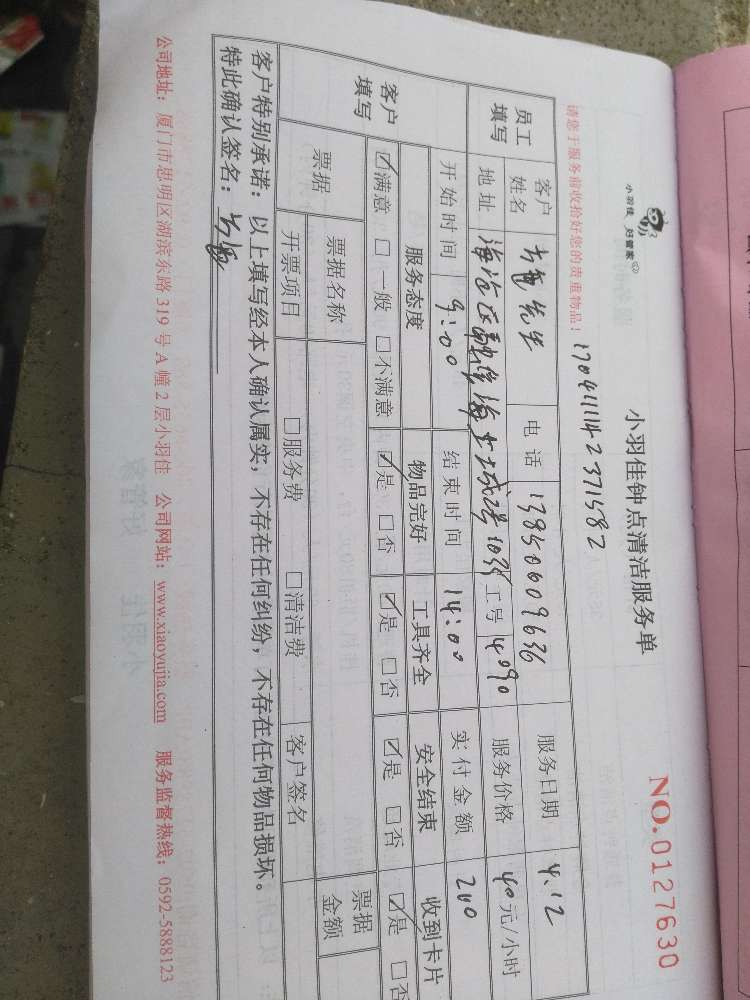 小羽佳 好管家
小羽佳钟点清洁服务单
NO.0127630
请您于服务前收拾好您的贵重物品！
1704111142371582
员工填写 客户姓名 先生 电话 13850609636 服务日期 4.12
地址 海沧区 海 2号103 工号 4090 服务价格 40元/小时
开始时间 9:00 结束时间 14:00 实付金额 200
客户填写 服务态度 物品完好 工具齐全 安全结束 收到卡片
☑满意 □一般 □不满意 ☑是 □否 ☑是 □否 ☑是 □否 ☑是 □否
票据 票据名称 票据金额
开票项目 □服务费 □清洁费 客户签名
客户特别承诺：以上填写经本人确认属实，不存在任何纠纷，不存在任何物品损坏。
特此确认签名：
公司地址：厦门市思明区湖滨东路319号A幢2层小羽佳 公司网站：www.xiaoyujia.com 服务监督热线：0592-5888123